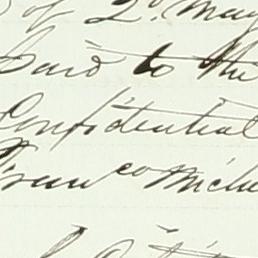 of 2d. May
Said to the
Confidential
Franco Miche